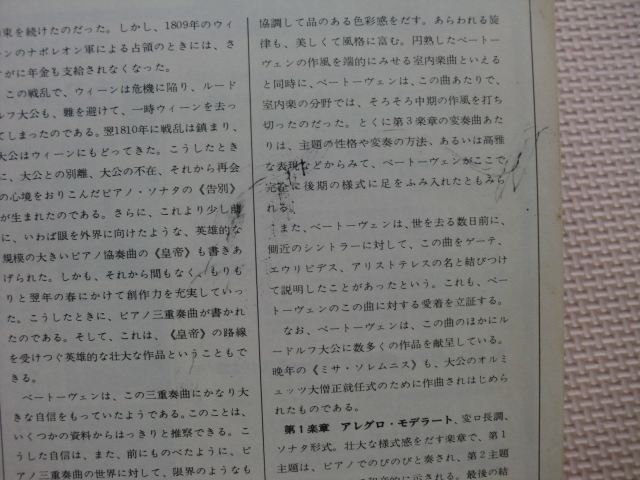 束を続けたのだった。しかし、1809年のウィ
ーンのナポレオン軍による占領のときには、さ
がに年金も支給されなくなった。
この戦乱で、ウィーンは危機に陥り、ルード
ルフ大公も、難を避けて、一時ウィーンを去っ
てしまったのである。翌1810年に戦乱は鎮まり、
大公はウィーンにもどってきた。こうしたとき
に、大公との別離、大公の不在、それから再会
の心境をおりこんだピアノ・ソナタの《告別》
が生まれたのである。さらに、これより少し前
に、いわば眼を外界に向けたような、英雄的な
規模の大きいピアノ協奏曲の《皇帝》も書きあ
げられた。しかも、それから間もなく、もりも
りと翌年の春にかけて創作力を充実していっ
た。こうしたときに、ピアノ三重奏曲が書かれ
たのである。そして、これは、《皇帝》の路線
を受けつぐ英雄的な壮大な作品ということもで
きる。
ベートーヴェンは、この三重奏曲にかなり大
きな自信をもっていたようである。このことは、
いくつかの資料からはっきりと推察できる。こ
うした自信は、また、前にものべたように、ピ
アノ三重奏曲の世界に対して、限界のようなも
協調して品のある色彩感をだす。あらわれる旋
律も、美しくて風格に富む。円熟したベートー
ヴェンの作風を端的にみせる室内楽曲といえる
と同時に、ベートーヴェンは、この曲あたりで、
室内楽の分野では、そろそろ中期の作風を打ち
切ったのだった。とくに第3楽章の変奏曲あた
りは、主題の性格や変奏の方法、あるいは高雅
な表現などからみて、ベートーヴェンがここで
完全に後期の様式に足をふみ入れたともみら
れる。
また、ベートーヴェンは、世を去る数日前に、
側近のシントラーに対して、この曲をゲーテ、
エウリピデス、アリストテレスの名と結びつけ
て説明したことがあったという。これも、ベー
トーヴェンのこの曲に対する愛着を立証する。
なお、ベートーヴェンは、この曲のほかにル
ードルフ大公に数多くの作品を献呈している。
晩年の《ミサ・ソレムニス》も、大公のオルミ
ュッツ大僧正就任式のために作曲されはじめら
れたものである。
第1楽章 アレグロ・モデラート、変ロ長調、
ソナタ形式。壮大な様式感をだす楽章で、第1
主題は、ピアノでのびのびと奏され、第2主題
に示される。最後の結